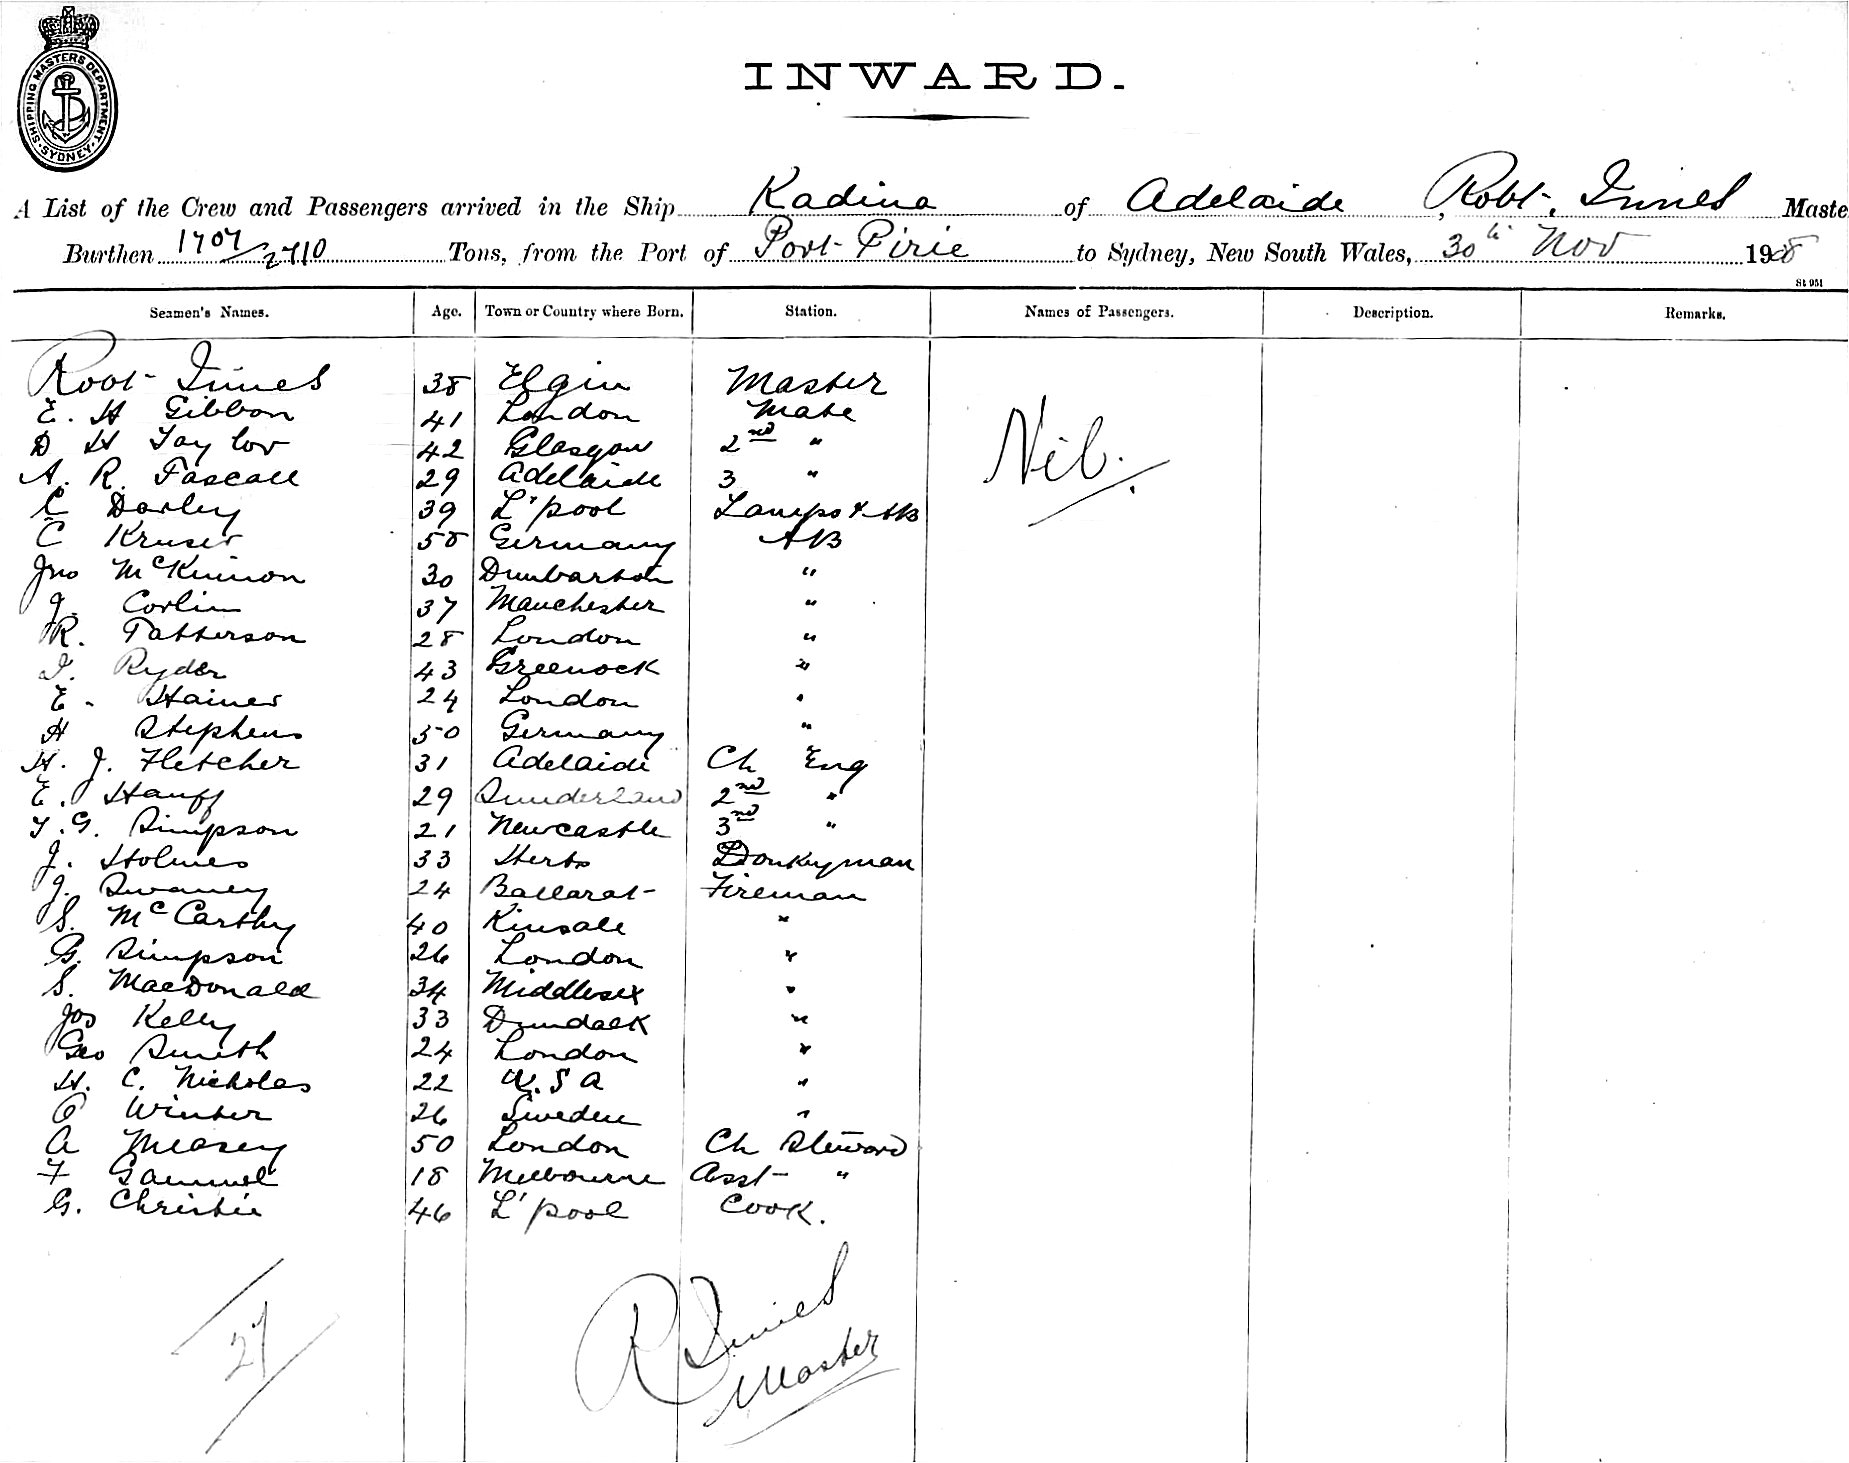 SHIPPING MASTERS DEPARTMENT. SYDNEY.
INWARD.
A List of the Crew and Passengers arrived in the Ship Kadina of Adelaide Robt. Innes Maste
Burthen 1707/2710 Tons, from the Port of Port Pirie to Sydney, New South Wales, 30th Nov 1908
St 951
Seamen's Names. Age. Town or Country where Born. Station. Names of Passengers. Description. Remarks.
Robt Innes 38 Elgin Master
E. H Gibbon 41 London Mate
D H Taylor 42 Glasgow 2nd "
A. R. Pascall 29 Adelaide 3 "
Nil.
C Darley 39 L'pool Lamps & AB
C Kruser 58 Germany AB
Jno McKinnon 30 Dumbarton "
J. Corlin 37 Manchester "
R. Patterson 28 London "
Ryder 43 Greenock "
E. Haines 24 London "
H Stephens 50 Germany "
H. J. Fletcher 31 Adelaide Ch Eng
E. Hauff 29 Sunderland 2nd "
T. G. Simpson 21 Newcastle 3nd "
J. Holmes 33 Herts Donkeyman
J. Swaney 24 Ballarat Fireman
S. McCarthy 40 Kinsale "
G. Simpson 26 London "
S. MacDonald 34 Middlesex "
Jos Kelly 33 Dundalk "
Geo Smith 24 London "
H. C. Nicholas 22 U.S A "
O Winter 26 Sweden "
A Measey 50 London Ch Steward
F Gammel 18 Melbourne Asst "
G. Christie 46 L'pool Cook.
27
R Innes
Master